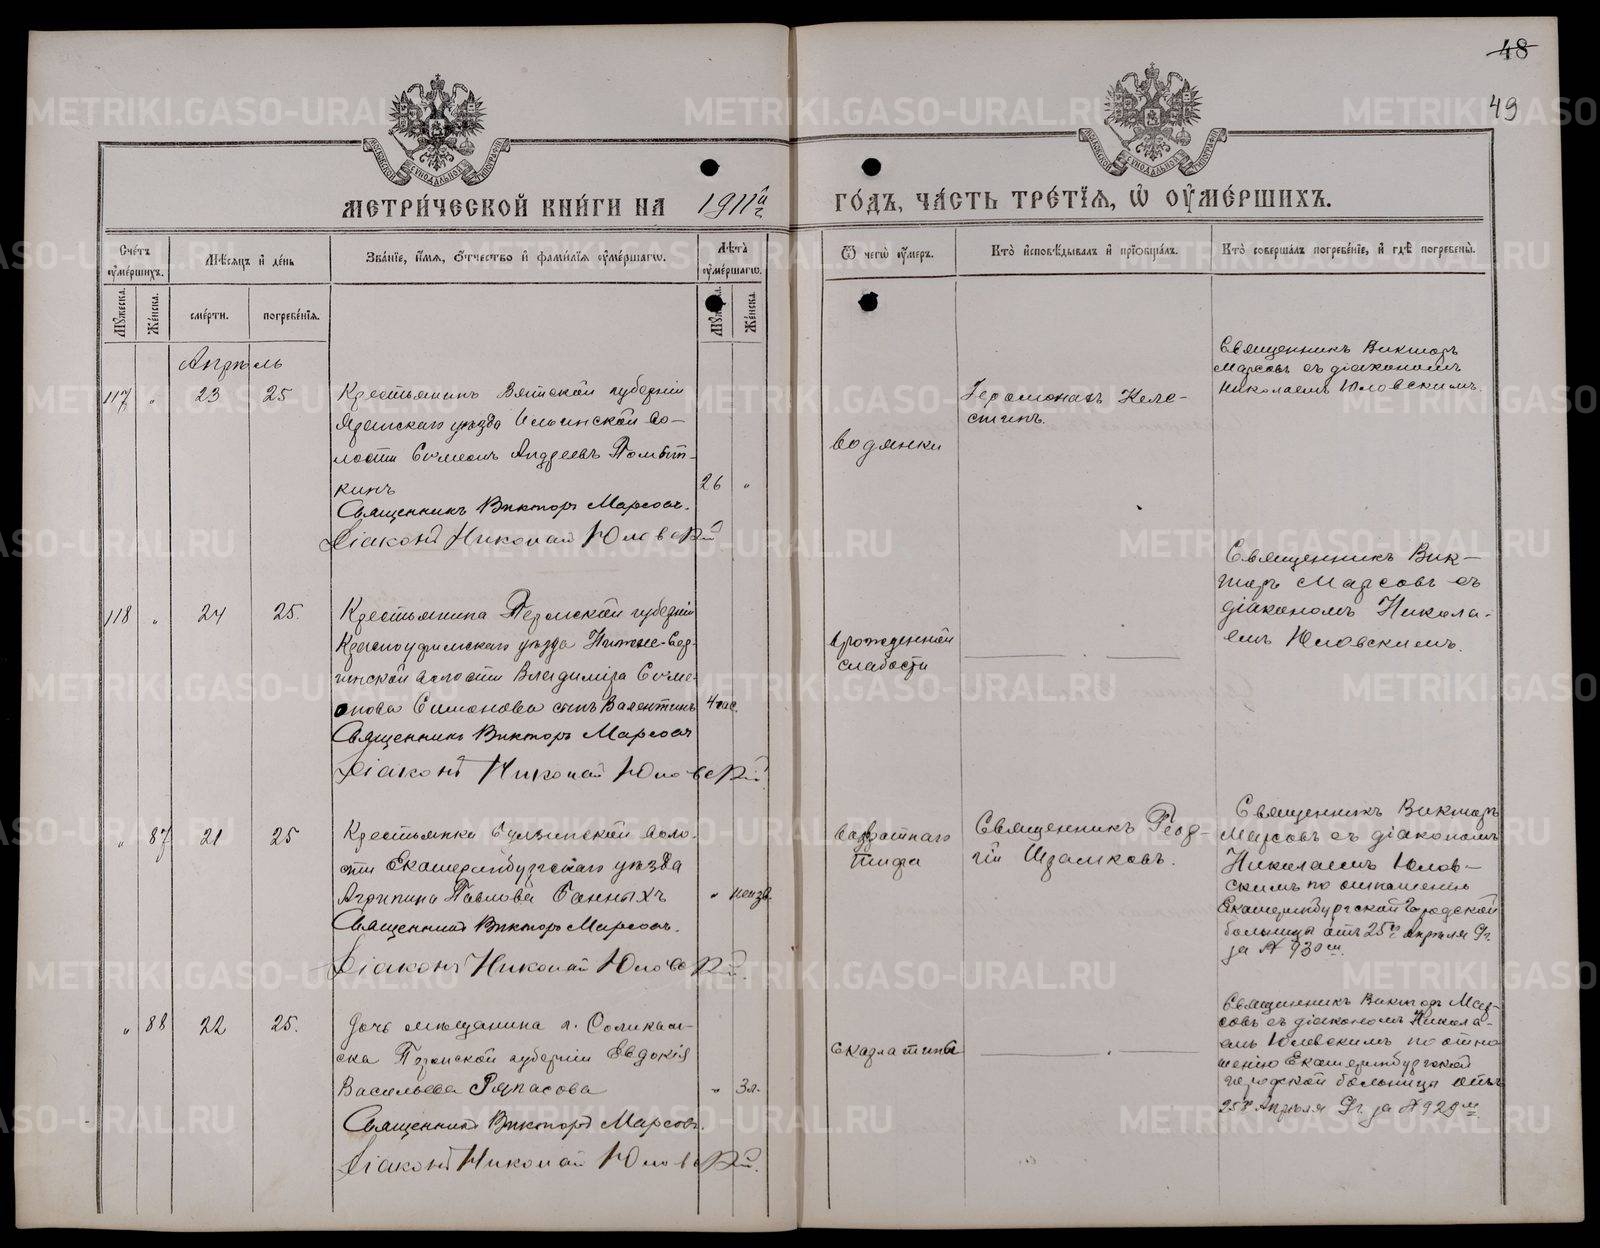 48
49
МЕТРИЧЕСКОЙ КНИГИ НА 1911й г.
ГОДЪ, ЧАСТЬ ТРЕТІЯ, Ѡ ОУМЕРШИХЪ.
Счетъ оумершихъ.
Мѣсяцъ и день
Званіе, имя, отчество и фамилія оумершаго.
Лѣта оумершаго.
Ѿ чего оумеръ.
Кто исповѣдывалъ и пріобщалъ.
Кто совершалъ погребеніе, и гдѣ погребены.
Мужеска.
Женска.
смерти.
погребенія.
Женска.
Апрѣль
117 " 23 25
Крестьянинъ Вятской губерніи
Яранскаго уѣзда Ильинской во-
лости Сѵмеонъ Андреевъ
кинъ
26 "
Священникъ Викторъ Марсовъ.
Діаконъ Николай Юловскій
Водянки
Іеромонахъ Келе-
стинъ.
Священникъ Викторъ
Марсовъ съ діакономъ
Николаемъ Юловскимъ.
118 " 24 25.
Крестьянина Пермской губерніи
Красноуфимскаго уѣзда Нижне-Сер-
гинской волости Владиміра Сѵме-
онова Симонова сынъ Валентинъ
4 час.
Священникъ Викторъ Марсовъ
Діаконъ Николай Юловскій
Врожденной
слабости
Священникъ Вик-
торъ Марсовъ съ
діакономъ Никола-
емъ Юловскимъ.
" 87 21 25
Крестьянка воло-
сти Екатеринбургскаго уѣзда
Агрипина Павлова Банныхъ
" неизв.
Священникъ Викторъ Марсовъ.
Діаконъ Николай Юловскій.
Возвратнаго
тифа
Священникъ Геор-
гій
Священникъ Викторъ
Марсовъ съ діакономъ
Николаемъ Юлов-
скимъ по отношенію
Екатеринбургской Городской
больницы отъ 25го Апрѣля 9г.
за № 930 м.
" 88 22 25.
Дочь мѣщанина г. Соликам-
ска Пермской губерніи Евдокія
Васильева
" 3 л.
Священникъ Викторъ Марсовъ.
Діаконъ Николай Юловскій.
Скарлатины
Священникъ Викторъ Мар-
совъ съ діакономъ Никола-
емъ Юловскимъ по отно
шенію Екатеринбургской
городской больницы отъ
25го Апрѣля 9г. за № 929 м.
METRIKI.GASO-URAL.RU